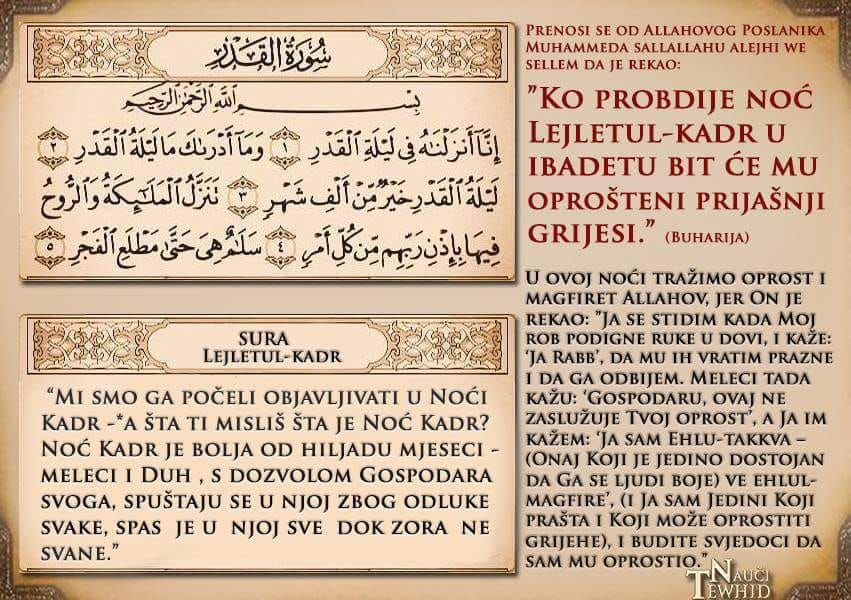 سُورَةُ القَدْرِ
بِسْمِ اللَّهِ الرَّحْمَٰنِ الرَّحِيمِ
إِنَّا أَنزَلْنَاهُ فِي لَيْلَةِ الْقَدْرِ ١ وَمَا أَدْرَاكَ مَا لَيْلَةُ الْقَدْرِ ٢
لَيْلَةُ الْقَدْرِ خَيْرٌ مِّنْ أَلْفِ شَهْرٍ ٣ تَنَزَّلُ الْمَلَائِكَةُ وَالرُّوحُ
فِيهَا بِإِذْنِ رَبِّهِم مِّن كُلِّ أَمْرٍ ٤ سَلَامٌ هِيَ حَتَّىٰ مَطْلَعِ الْفَجْرِ ٥
SURA
LEJLETUL-KADR
“MI SMO GA POČELI OBJAVLJIVATI U NOĆI
KADR -*A ŠTA TI MISLIŠ ŠTA JE NOĆ KADR?
NOĆ KADR JE BOLJA OD HILJADU MJESECI -
MELECI I DUH , S DOZVOLOM GOSPODARA
SVOGA, SPUŠTAJU SE U NJOJ ZBOG ODLUKE
SVAKE, SPAS JE U NJOJ SVE DOK ZORA NE
SVANE.”
PRENOSI SE OD ALLAHOVOG POSLANIKA
MUHAMMEDA SALLALLAHU ALEJHI WE
SELLEM DA JE REKAO:
”KO PROBDIJE NOĆ
LEJLETUL-KADR U
IBADETU BIT ĆE MU
OPROŠTENI PRIJAŠNJI
GRIJESI.” (BUHARIJA)
U OVOJ NOĆI TRAŽIMO OPROST I
MAGFIRET ALLAHOV, JER ON JE
REKAO: ”JA SE STIDIM KADA MOJ
ROB PODIGNE RUKE U DOVI, I KAŽE:
‘JA RABB’, DA MU IH VRATIM PRAZNE
I DA GA ODBIJEM. MELECI TADA
KAŽU: ‘GOSPODARU, OVAJ NE
ZASLUŽUJE TVOJ OPROST’, A JA IM
KAŽEM: ‘JA SAM EHLU-TAKKVA –
(ONAJ KOJI JE JEDINO DOSTOJAN
DA GA SE LJUDI BOJE) VE EHLUL-
MAGFIRE’, (I JA SAM JEDINI KOJI
PRAŠTA I KOJI MOŽE OPROSTITI
GRIJEHE), I BUDITE SVJEDOCI DA
SAM MU OPROSTIO.”
NAUČI
TEWHID